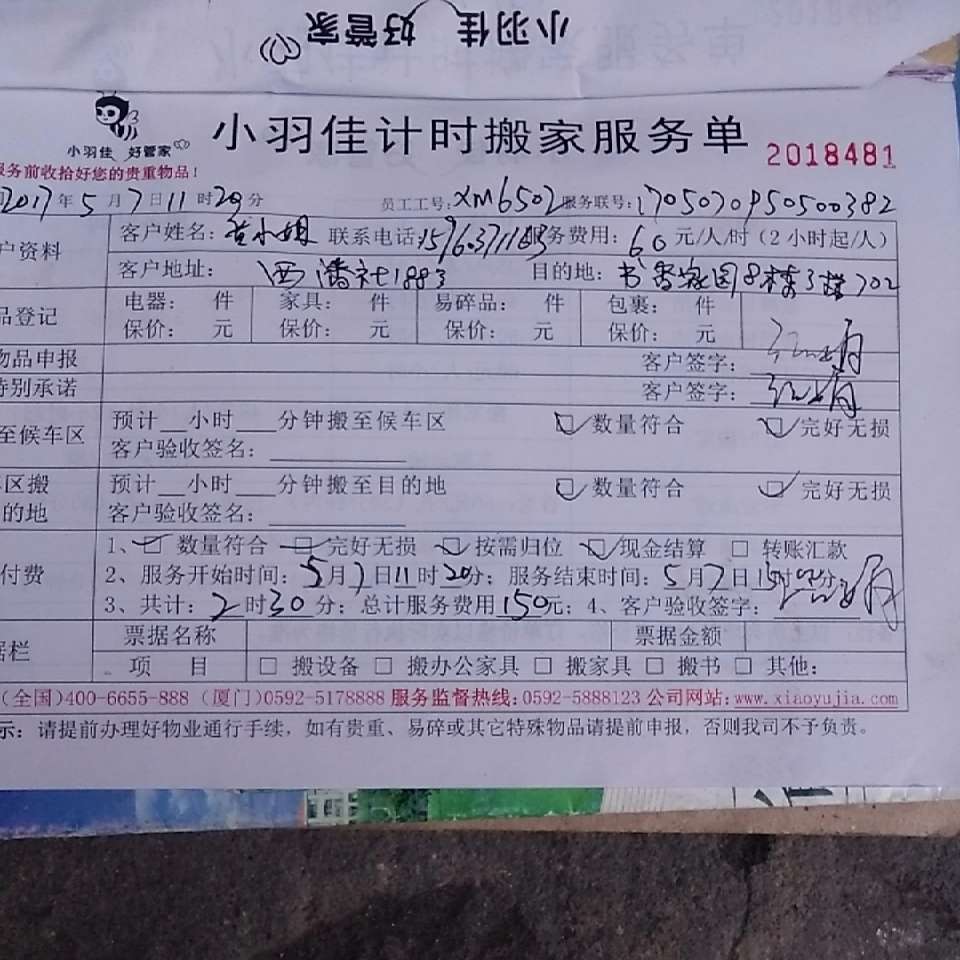 小羽佳 好管家
小羽佳 好管家
小羽佳计时搬家服务单
2018481
服务前收拾好您的贵重物品！
2017年5月7日11时20分 员工工号：XM6502 服务联号：1705070950500382
户资料 客户姓名：黄小姐 联系电话： 服务费用：60元/人/时（2小时起/人）
客户地址：西潘社1883 目的地：书香家园8栋3楼702
品登记 电器： 件 家具： 件 易碎品： 件 包裹： 件
保价： 元 保价： 元 保价： 元 保价： 元
物品申报 客户签字：
特别承诺 客户签字：
至候车区 预计__小时___分钟搬至候车区 ☑数量符合 ☑完好无损
客户验收签名：
车区搬 预计__小时___分钟搬至目的地 ☑数量符合 ☑完好无损
的地 客户验收签名：
付费 1、☑数量符合 ☑完好无损 ☑按需归位 ☑现金结算 □ 转账汇款
2、服务开始时间：5月7日11时20分；服务结束时间：5月7日15时02分
3、共计：2时30分；总计服务费用150元；4、客户验收签字：
据栏 票据名称 票据金额
项 目 □ 搬设备 □ 搬办公家具 □ 搬家具 □ 搬书 □ 其他：
(全国)400-6655-888 (厦门)0592-5178888 服务监督热线：0592-5888123 公司网站：www.xiaoyujia.com
示：请提前办理好物业通行手续，如有贵重、易碎或其它特殊物品请提前申报，否则我司不予负责。